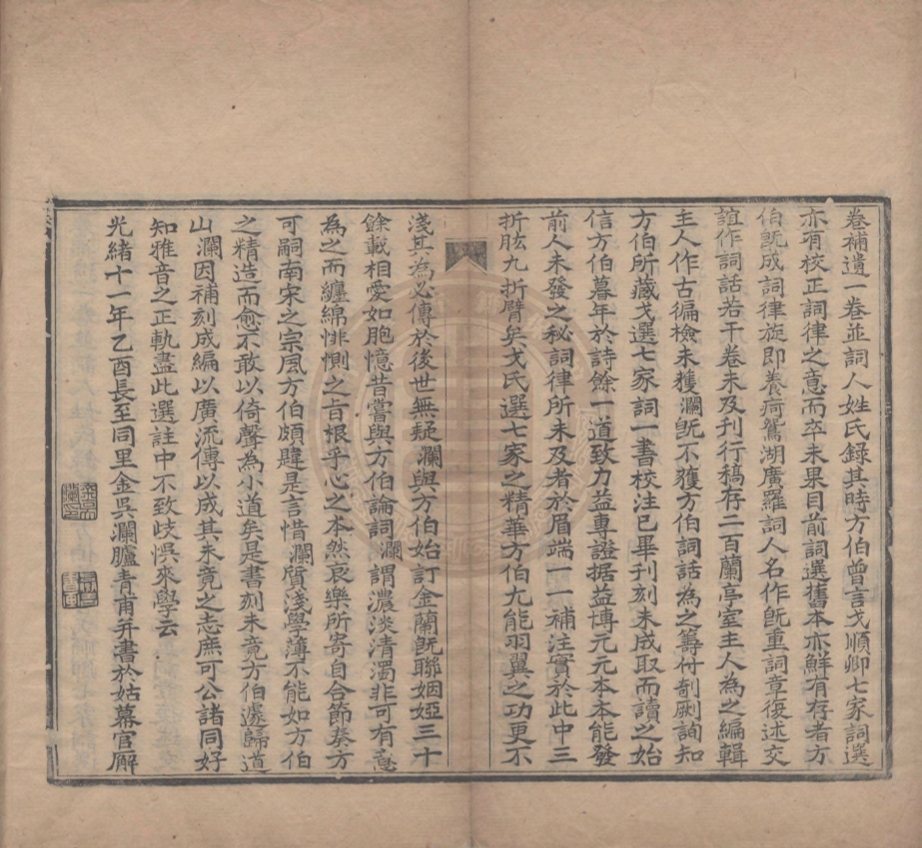 卷補遺一卷並詞人姓氏録其時方伯曾言戈順卿七家詞選
亦有校正詞律之意而卒未果目前詞選舊本亦鮮有存者方
伯旣成詞律旋即養疴鴛湖廣羅詞人名作旣重詞章復述交
誼作詞話若干卷未及刊行稿存二百蘭亭室主人為之編輯
主人作古徧檢未獲瀾旣不獲方伯詞話為之籌付剞劂詢知
方伯所藏戈選七家詞一書校注已畢刊刻未成取而讀之始
信方伯暮年於詩餘一道致力益專證据益博元元本本能發
前人未發之秘詞律所未及者於眉端一一補注實於此中三
折肱九折臂矣戈氏選七家之精華方伯尤能羽翼之功更不
淺其為必傳於後世無疑瀾與方伯始訂金蘭旣聯姻婭三十
餘載相愛如胞憶昔嘗與方伯論詞瀾謂濃淡清濁非可有意
為之而纏綿悱惻之音根乎心之本然哀樂所寄自合節奏方
可嗣南宋之宗風方伯頗韙是言惜瀾質淺學薄不能如方伯
之精造而愈不敢以倚聲為小道矣是書刻未竟方伯遽歸道
山瀾因補刻成編以廣流傳以成其未竟之志庶可公諸同好
知雅音之正軌盡此選註中不致歧悞來學云
光緒十一年乙酉長至同里金吳瀾臚青甫并書於姑幕官廨